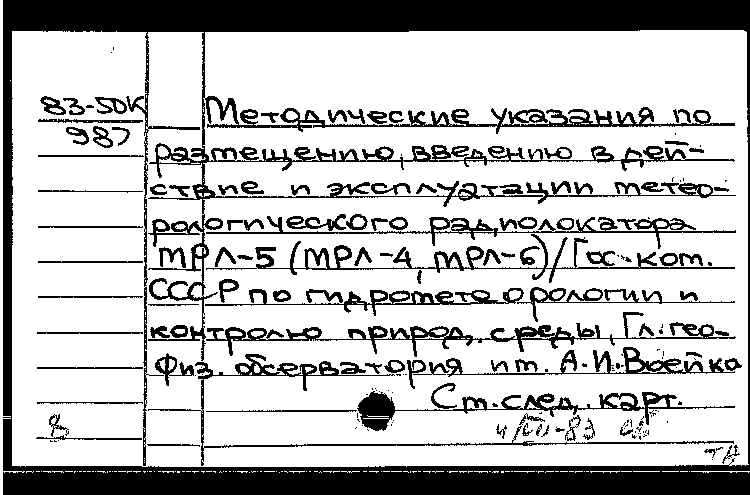 83-5DK Методические указания по
987 размещению, введению в дей-
ствие и эксплуатации метео-
рологического радиолокатора
МРЛ-5 (МРЛ-4, МРЛ-6)/Гос. ком.
СССР по гидрометеорологии и
контролю природ. среды, Гл. гео-
физ. обсерватория им. А.И.Воейко
См. след. карт.